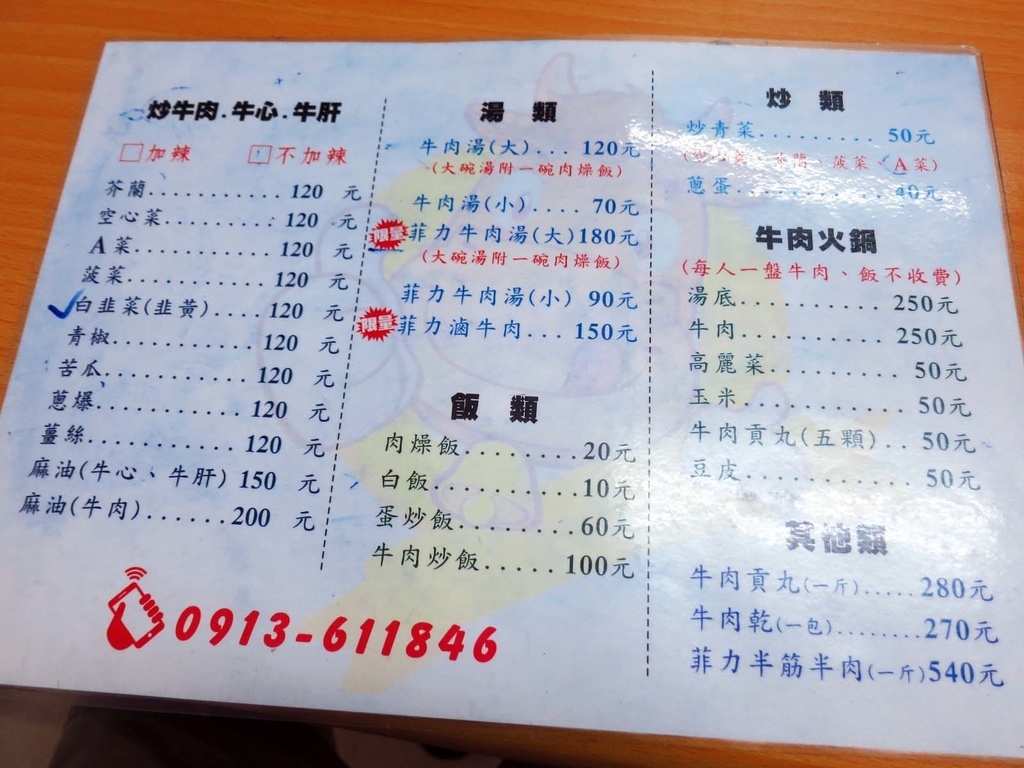 炒牛肉.牛心.牛肝
□加辣 □不加辣
芥蘭............120 元
空心菜.........120 元
A菜............120 元
菠菜............120 元
白韭菜(韭黃)....120 元
青椒...........120 元
苦瓜...........120 元
蔥爆............120 元
薑絲............120 元
麻油(牛心、牛肝) 150 元
麻油(牛肉).......200 元
0913-611846
湯類
牛肉湯(大)...120元
(大碗湯附一碗肉燥飯)
牛肉湯(小)....70元
限量 菲力牛肉湯(大)180元
(大碗湯附一碗肉燥飯)
菲力牛肉湯(小) 90元
限量 菲力滷牛肉...150元
飯類
肉燥飯........20元
白飯..........10元
蛋炒飯........60元
牛肉炒飯.....100元
炒類
炒青菜..........50元
(空心菜、芥蘭、菠菜、A菜)
蔥蛋............40元
牛肉火鍋
(每人一盤牛肉、飯不收費)
湯底..........250元
牛肉..........250元
高麗菜.........50元
玉米...........50元
牛肉貢丸(五顆)..50元
豆皮...........50元
其他類
牛肉貢丸(一斤).....280元
牛肉乾(一包)........270元
菲力半筋半肉(一斤)540元